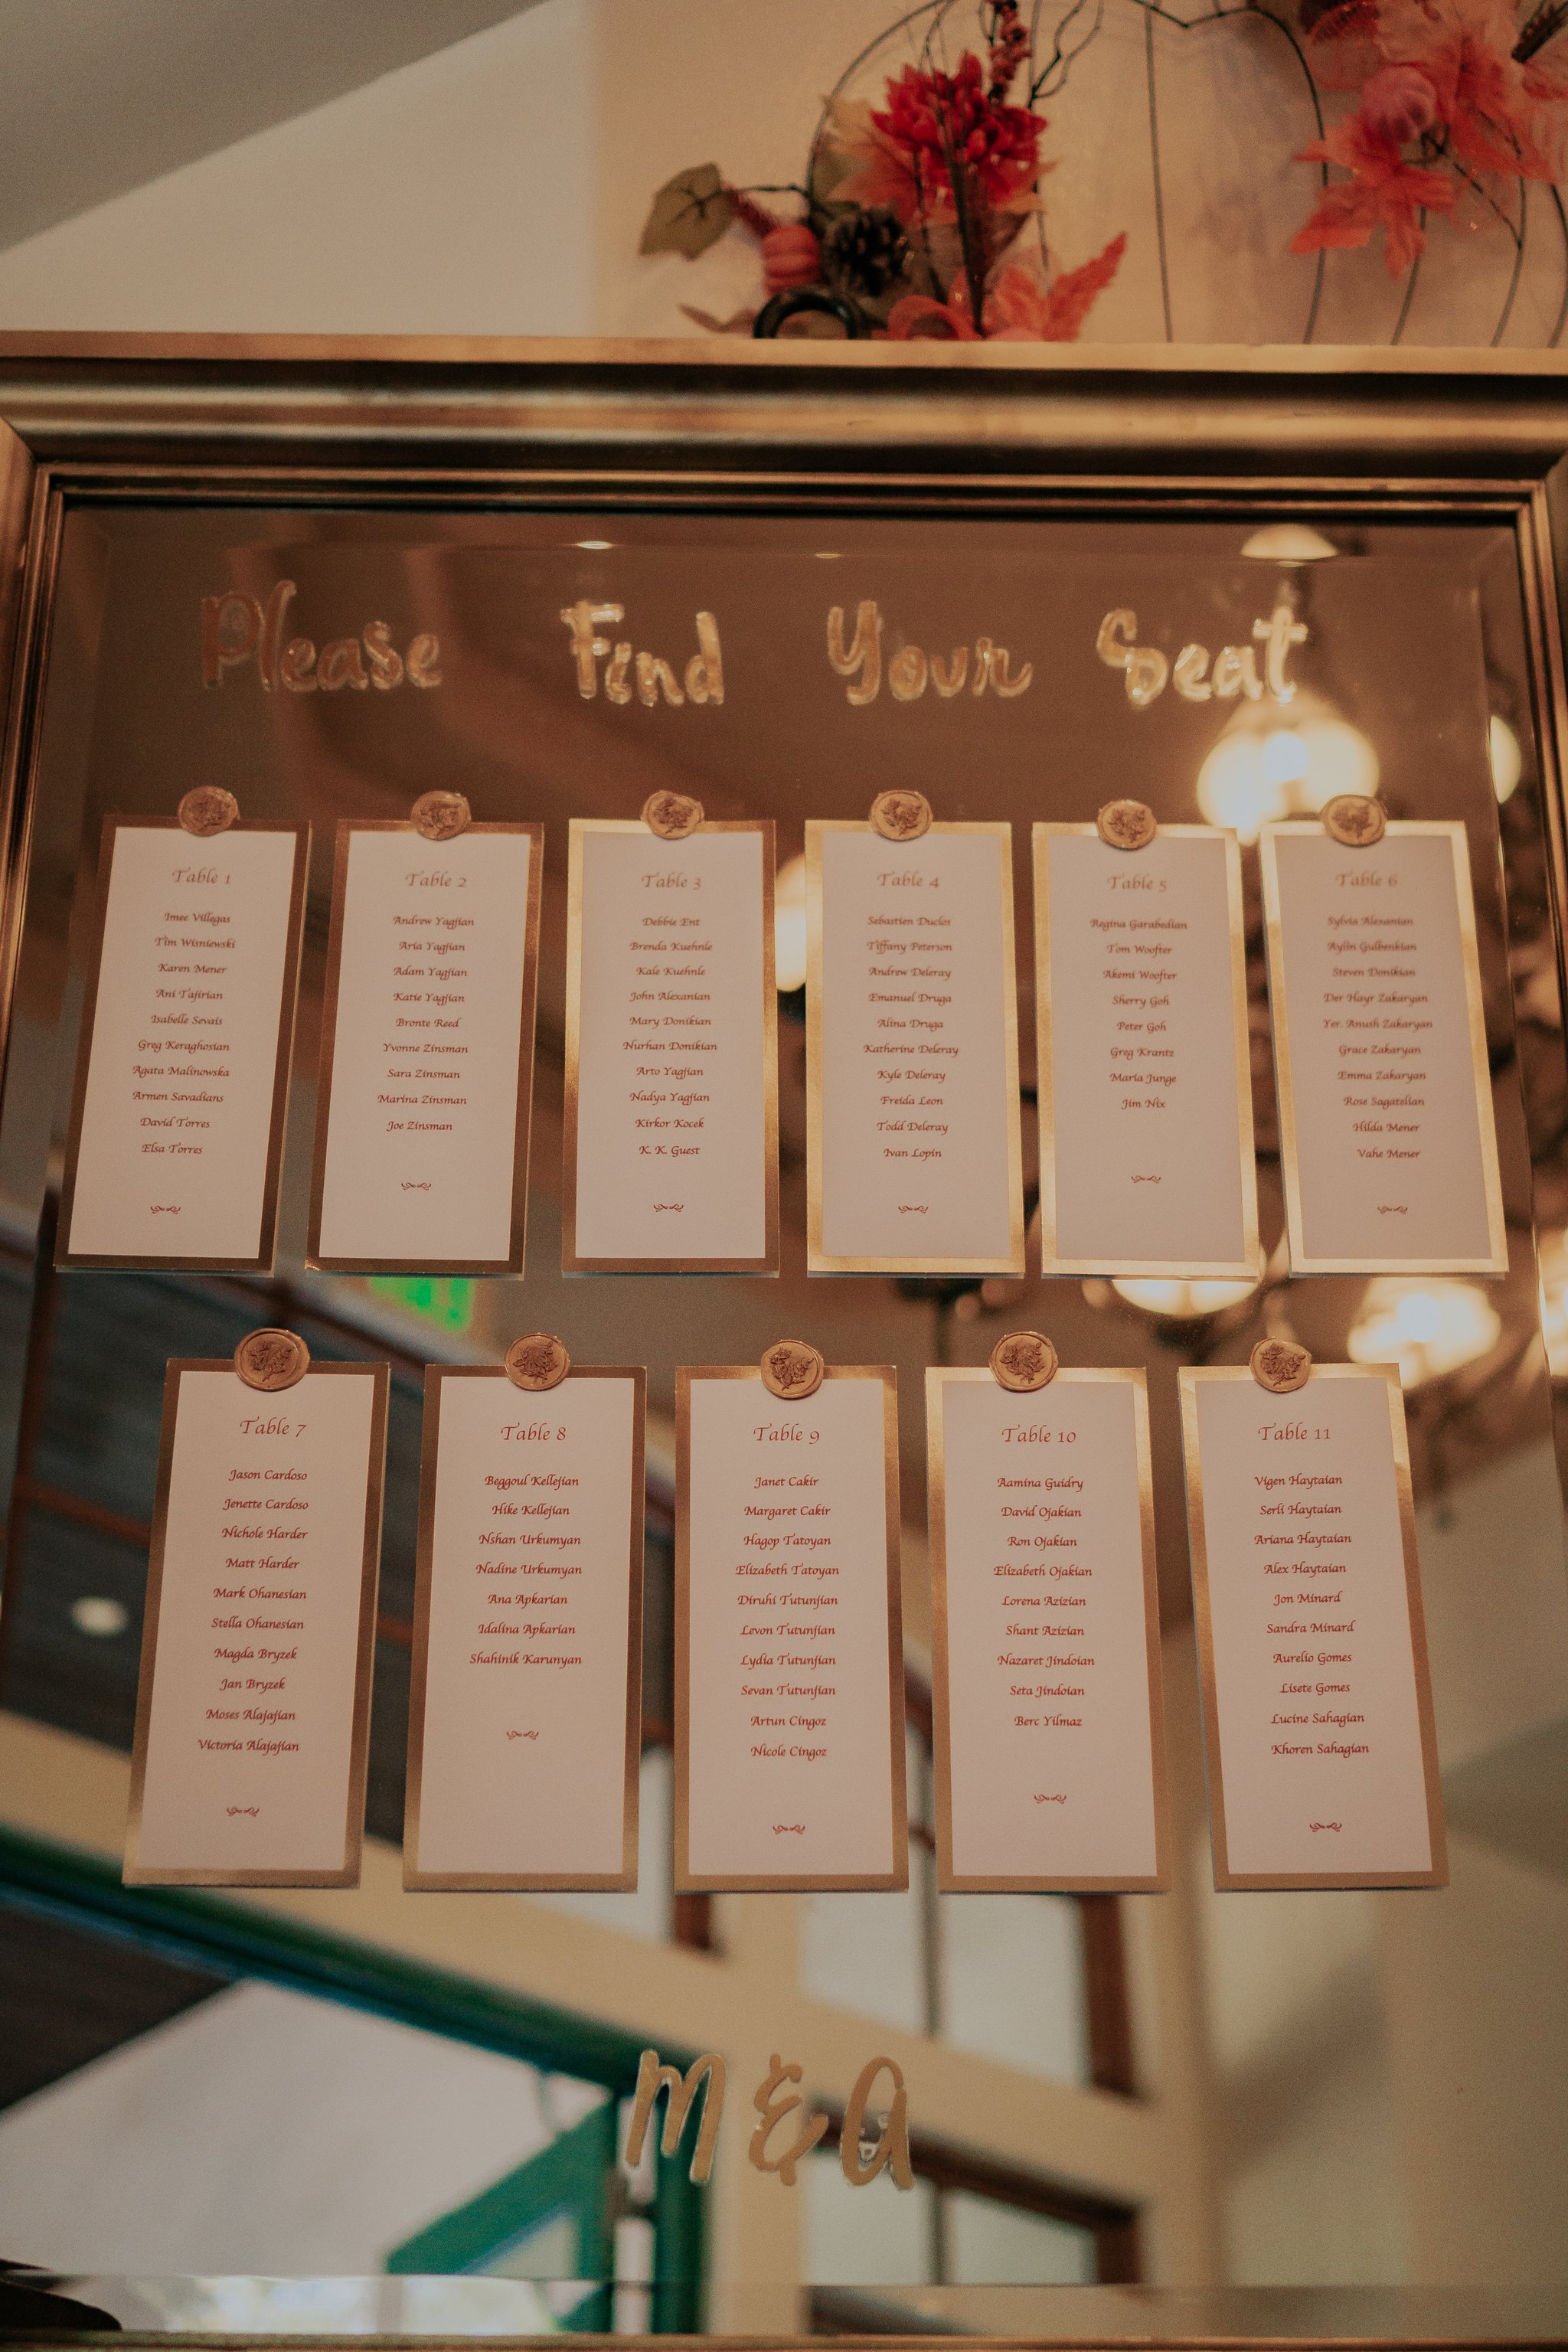 Please Find Your Seat
Table 1
Imee Villegas
Tim Wisniewski
Karen Mener
Ani Tajirian
Isabelle Sevais
Greg Keraghosian
Agata Malinowska
Armen Savadians
David Torres
Elsa Torres
Table 2
Andrew Yagjian
Aria Yagjian
Adam Yagjian
Katie Yagjian
Bronte Reed
Yvonne Zinsman
Sara Zinsman
Marina Zinsman
Joe Zinsman
Table 3
Debbie Ent
Brenda Kuehnle
Kale Kuehnle
John Alexanian
Mary Donikian
Nurhan Donikian
Arto Yagjian
Nadya Yagjian
Kirkor Kocek
K. K. Guest
Table 4
Sebastien Duclos
Tiffany Peterson
Andrew Deleray
Emanuel Druga
Alina Druga
Katherine Deleray
Kyle Deleray
Freida Leon
Todd Deleray
Ivan Lopin
Table 5
Regina Garabedian
Tom Woofter
Akemi Woofter
Sherry Goh
Peter Goh
Greg Krantz
Maria Junge
Jim Nix
Table 6
Sylvia Alexanian
Aylin Gulbenkian
Steven Donikian
Der Hayr Zakaryan
Yer. Anush Zakaryan
Grace Zakaryan
Emma Zakaryan
Rose Sagatelian
Hilda Mener
Vahe Mener
Table 7
Jason Cardoso
Jenette Cardoso
Nichole Harder
Matt Harder
Mark Ohanesian
Stella Ohanesian
Magda Bryzek
Jan Bryzek
Moses Alajajian
Victoria Alajajian
Table 8
Beggoul Kellejian
Hike Kellejian
Nshan Urkumyan
Nadine Urkumyan
Ana Apkarian
Idalina Apkarian
Shahinik Karunyan
Table 9
Janet Cakir
Margaret Cakir
Hagop Tatoyan
Elizabeth Tatoyan
Diruhi Tutunjian
Levon Tutunjian
Lydia Tutunjian
Sevan Tutunjian
Artun Cingoz
Nicole Cingoz
Table 10
Aamina Guidry
David Ojakian
Ron Ojakian
Elizabeth Ojakian
Lorena Azizian
Shant Azizian
Nazaret Jindoian
Seta Jindoian
Berc Yilmaz
Table 11
Vigen Haytaian
Serli Haytaian
Ariana Haytaian
Alex Haytaian
Jon Minard
Sandra Minard
Aurelio Gomes
Lisete Gomes
Lucine Sahagian
Khoren Sahagian
M & A